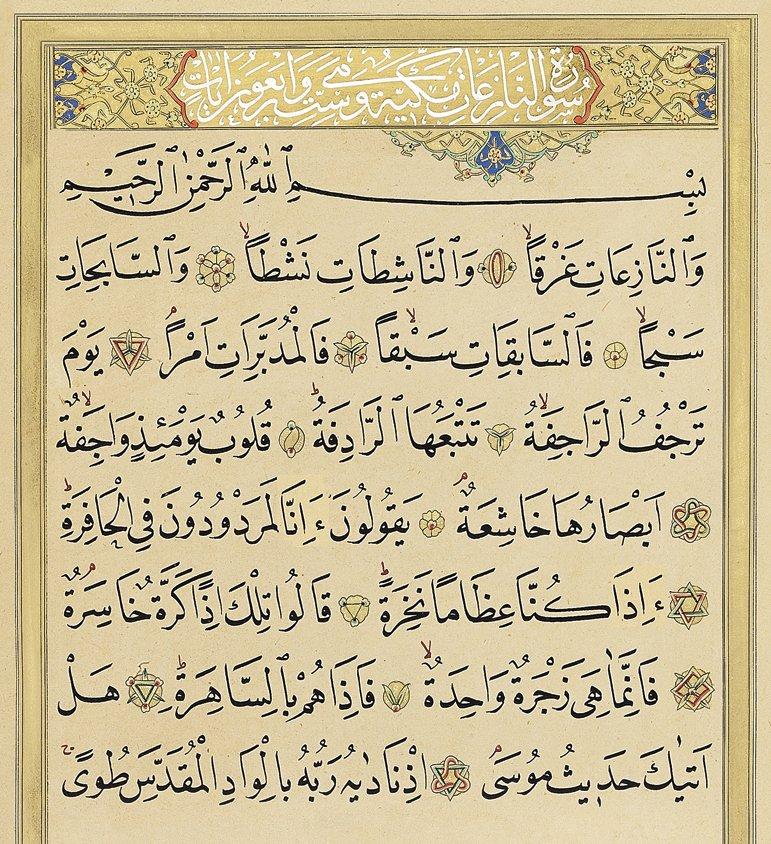 سورة النازعات مكية وهي ست وأربعون آيات
بِسْمِ ٱللّٰهِ ٱلرَّحْمٰنِ ٱلرَّحِيمِ
وَٱلنَّازِعَاتِ غَرْقًاۙ وَٱلنَّاشِطَاتِ نَشْطًاۙ وَٱلسَّابِحَاتِ
سَبْحًاۙ فَٱلسَّابِقَاتِ سَبْقًاۙ فَالْمُدَبِّرَاتِ اَمْرًاۘ يَوْمَ
تَرْجُفُ الرَّاجِفَةُۙ تَتْبَعُهَا الرَّادِفَةُؕ قُلُوبٌ يَوْمَئِذٍ وَاجِفَةٌۙ
اَبْصَارُهَا خَاشِعَةٌۘ يَقُولُونَ ءَاِنَّا لَمَرْدُودُونَ فِي الْحَافِرَةِؕ
ءَاِذَا كُنَّا عِظَامًا نَخِرَةًؕ قَالُوا تِلْكَ اِذًا كَرَّةٌ خَاسِرَةٌۘ
فَاِنَّمَا هِيَ زَجْرَةٌ وَاحِدَةٌۙ فَاِذَا هُمْ بِٱلسَّاهِرَةِؕ هَلْ
اَتٰيكَ حَدِيثُ مُوسَىۘ اِذْ نَادٰيهُ رَبُّهُ بِالْوَادِ الْمُقَدَّسِ طُوًىۚ